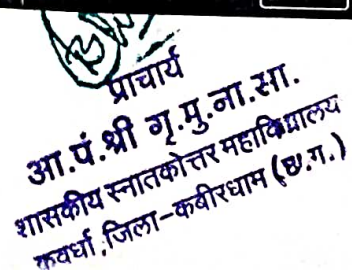 प्राचार्य
आ.पं.श्री गृ.मु.ना.सा.
शासकीय स्नातकोत्तर महाविद्यालय
कवर्धा,जिला-कबीरधाम (छ.ग.)